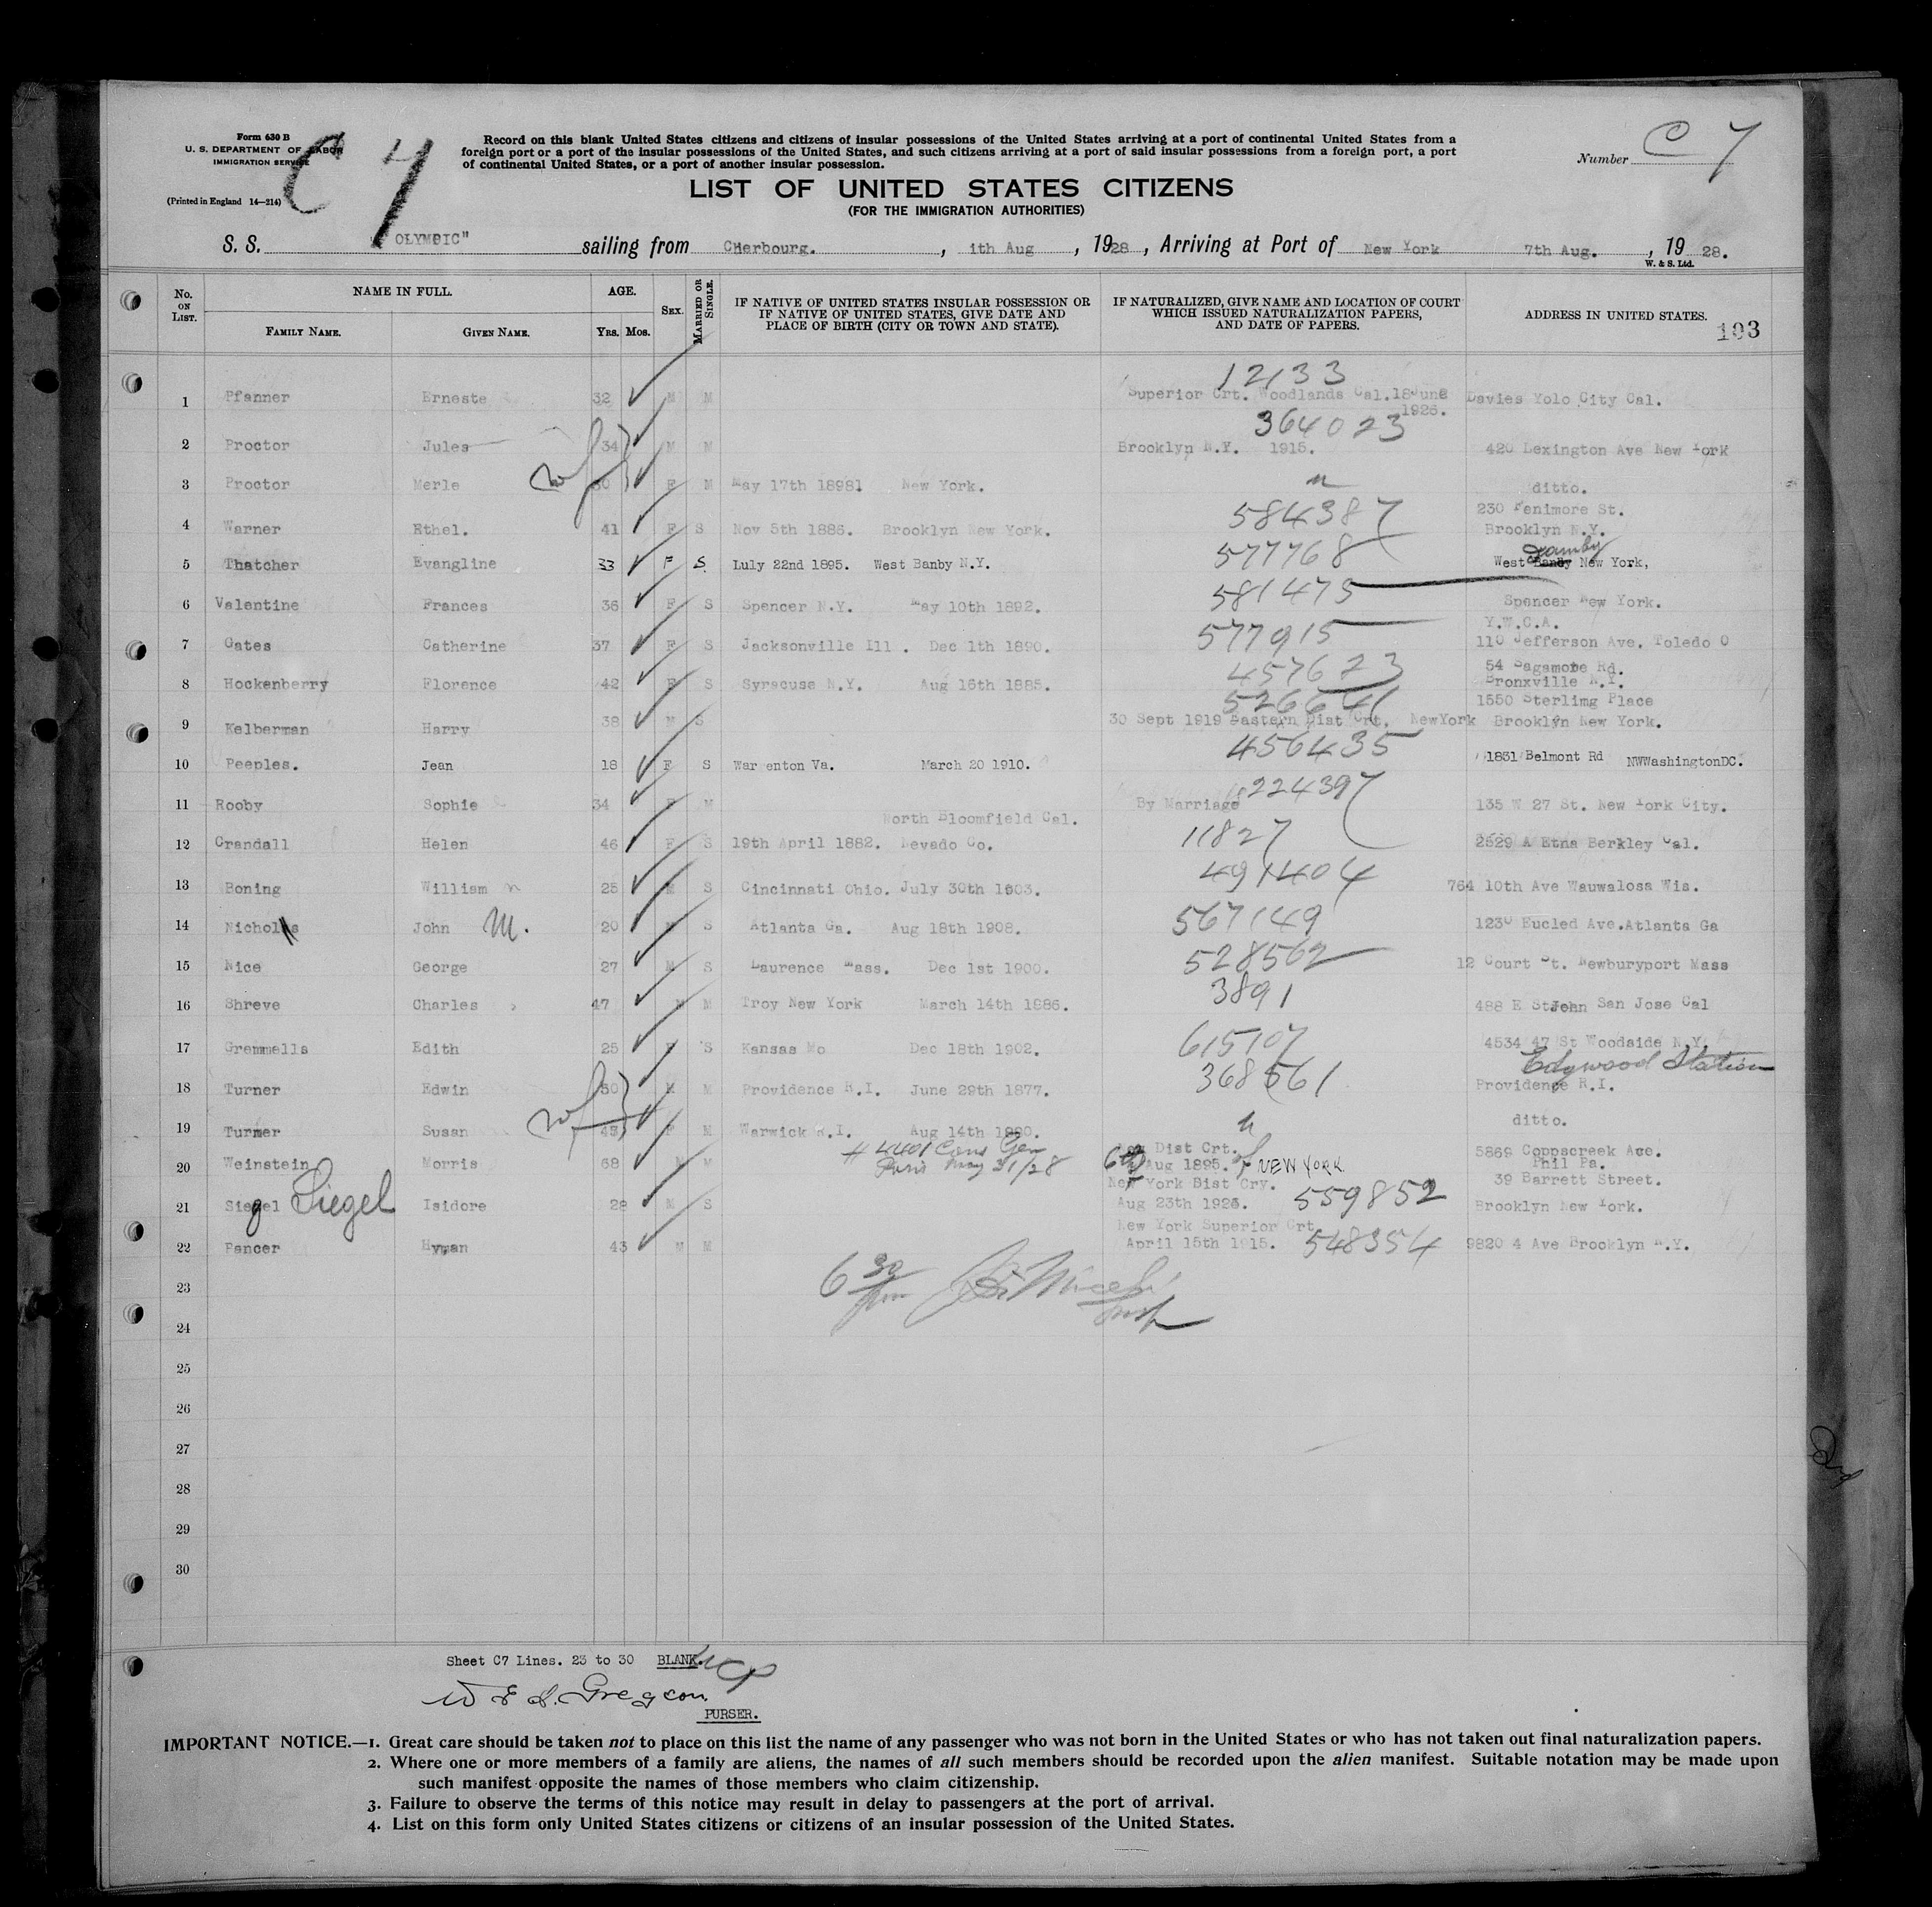 Form 630 B
U. S. DEPARTMENT OF LABOR
IMMIGRATION SERVICE
(Printed in England 14—214)
C 7
Record on this blank United States citizens and citizens of insular possessions of the United States arriving at a port of continental United States from a
foreign port or a port of the insular possessions of the United States, and such citizens arriving at a port of said insular possessions from a foreign port, a port
of continental United States, or a port of another insular possession.
Number C 7
LIST OF UNITED STATES CITIZENS
(FOR THE IMMIGRATION AUTHORITIES)
S. S. OLYMPIC" sailing from Cherbourg. , 1th Aug , 1928 , Arriving at Port of New York 7th Aug. , 19 28.
W. & S. Ltd.
No. ON LIST. NAME IN FULL. AGE. SEX. MARRIED OR SINGLE. IF NATIVE OF UNITED STATES INSULAR POSSESSION OR IF NATIVE OF UNITED STATES, GIVE DATE AND PLACE OF BIRTH (CITY OR TOWN AND STATE). IF NATURALIZED, GIVE NAME AND LOCATION OF COURT WHICH ISSUED NATURALIZATION PAPERS, AND DATE OF PAPERS. ADDRESS IN UNITED STATES.
FAMILY NAME. GIVEN NAME. YRS. MOS.
103
12133
1 Pfanner Erneste 32 M M Superior Crt. Woodlands Cal. 18June 1926. Davies Yolo City Cal.
364023
2 Proctor Jules 34 M M Brooklyn N.Y. 1915. 420 Lexington Ave New York
3 Proctor Merle 30 F M May 17th 18981 New York. ditto.
584387 230 Fenimore St.
4 Warner Ethel. 41 F S Nov 5th 1886. Brooklyn New York. Brooklyn N.Y.
577768
5 Thatcher Evangline 33 F S. Luly 22nd 1895. West Banby N.Y. West Banby New York,
581475
6 Valentine Frances 36 F S Spencer N.Y. May 10th 1892. Spencer New York.
577915 Y.W.C.A.
7 Gates Catherine 37 F S Jacksonville Ill . Dec 1th 1890. 110 Jefferson Ave. Toledo O
457623 54 Sagamore Rd.
8 Hockenberry Florence 42 F S Syracuse N.Y. Aug 16th 1885. Bronxville N.Y.
526641 1550 Sterlimg Place
9 Kelberman Harry 38 M S 30 Sept 1919 Eastern Dist Crt. NewYork Brooklyn New York.
456435
10 Peeples. Jean 18 F S War enton Va. March 20 1910. 1831 Belmont Rd NWWashingtonDC.
224397
11 Rooby Sophie 34 F M By Marriage 135 W 27 St. New York City.
North Bloomfield Cal.
12 Crandall Helen 46 F S 19th April 1882. Nevado Co. 11827 2529 A Etna Berkley Cal.
491404
13 Boning William 25 M S Cincinnati Ohio. July 30th 1903. 764 10th Ave Wauwalosa Wis.
14 Nichols John M. 20 M S Atlanta Ga. Aug 18th 1908. 567149 1230 Eucled Ave.Atlanta Ga
15 Nice George 27 M S Laurence Mass. Dec 1st 1900. 528562 12 Court St. Newburyport Mass
16 Shreve Charles 47 M M Troy New York March 14th 1886. 3891 488 E StJohn San Jose Cal
17 Gremmells Edith 25 F S Kansas Mo Dec 18th 1902. 615107 4534 47 St Woodside N.Y.
Edgwood Station
18 Turner Edwin 50 M M Providence R.I. June 29th 1877. 368561 Providence R.I.
19 Turner Susan 45 F M Warwick R.I. Aug 14th ditto.
# 4401 Cons Gen Dist Crt. 5869 Coppscreek Ace.
20 Weinstein Morris 58 M M Paris May 31/28 6th Aug 1895. of NEW YORK Phil Pa.
New York Dist Cry. 39 Barrett Street.
21 Siegel Siegel Isidore 28 M S Aug 23th 1926. 559852 Brooklyn New York.
New York Superior Crt
22 Pancer Hyman 43 M M April 15th 1915. 548354 9820 4 Ave Brooklyn N.Y.
23
6 30
24
25
26
27
28
29
30
Sheet C7 Lines. 23 to 30 BLANK.
PURSER.
IMPORTANT NOTICE.—1. Great care should be taken not to place on this list the name of any passenger who was not born in the United States or who has not taken out final naturalization papers.
2. Where one or more members of a family are aliens, the names of all such members should be recorded upon the alien manifest. Suitable notation may be made upon
such manifest opposite the names of those members who claim citizenship.
3. Failure to observe the terms of this notice may result in delay to passengers at the port of arrival.
4. List on this form only United States citizens or citizens of an insular possession of the United States.